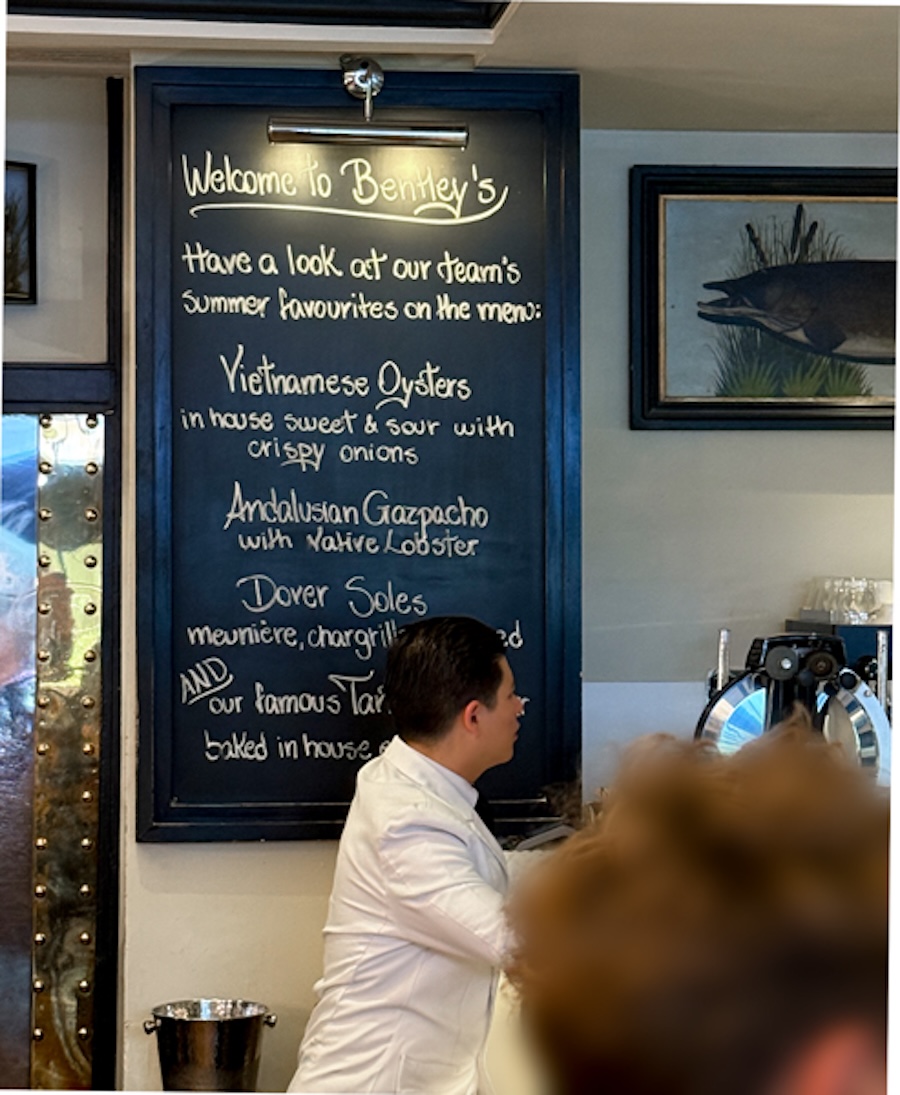 Welcome to Bentley's
Have a look at our team's
summer favourites on the menu:
Vietnamese Oysters
in house sweet & sour with
crispy onions
Andalusian Gazpacho
with Native Lobster
Dover Soles
meunière,
AND
our famous
baked in house